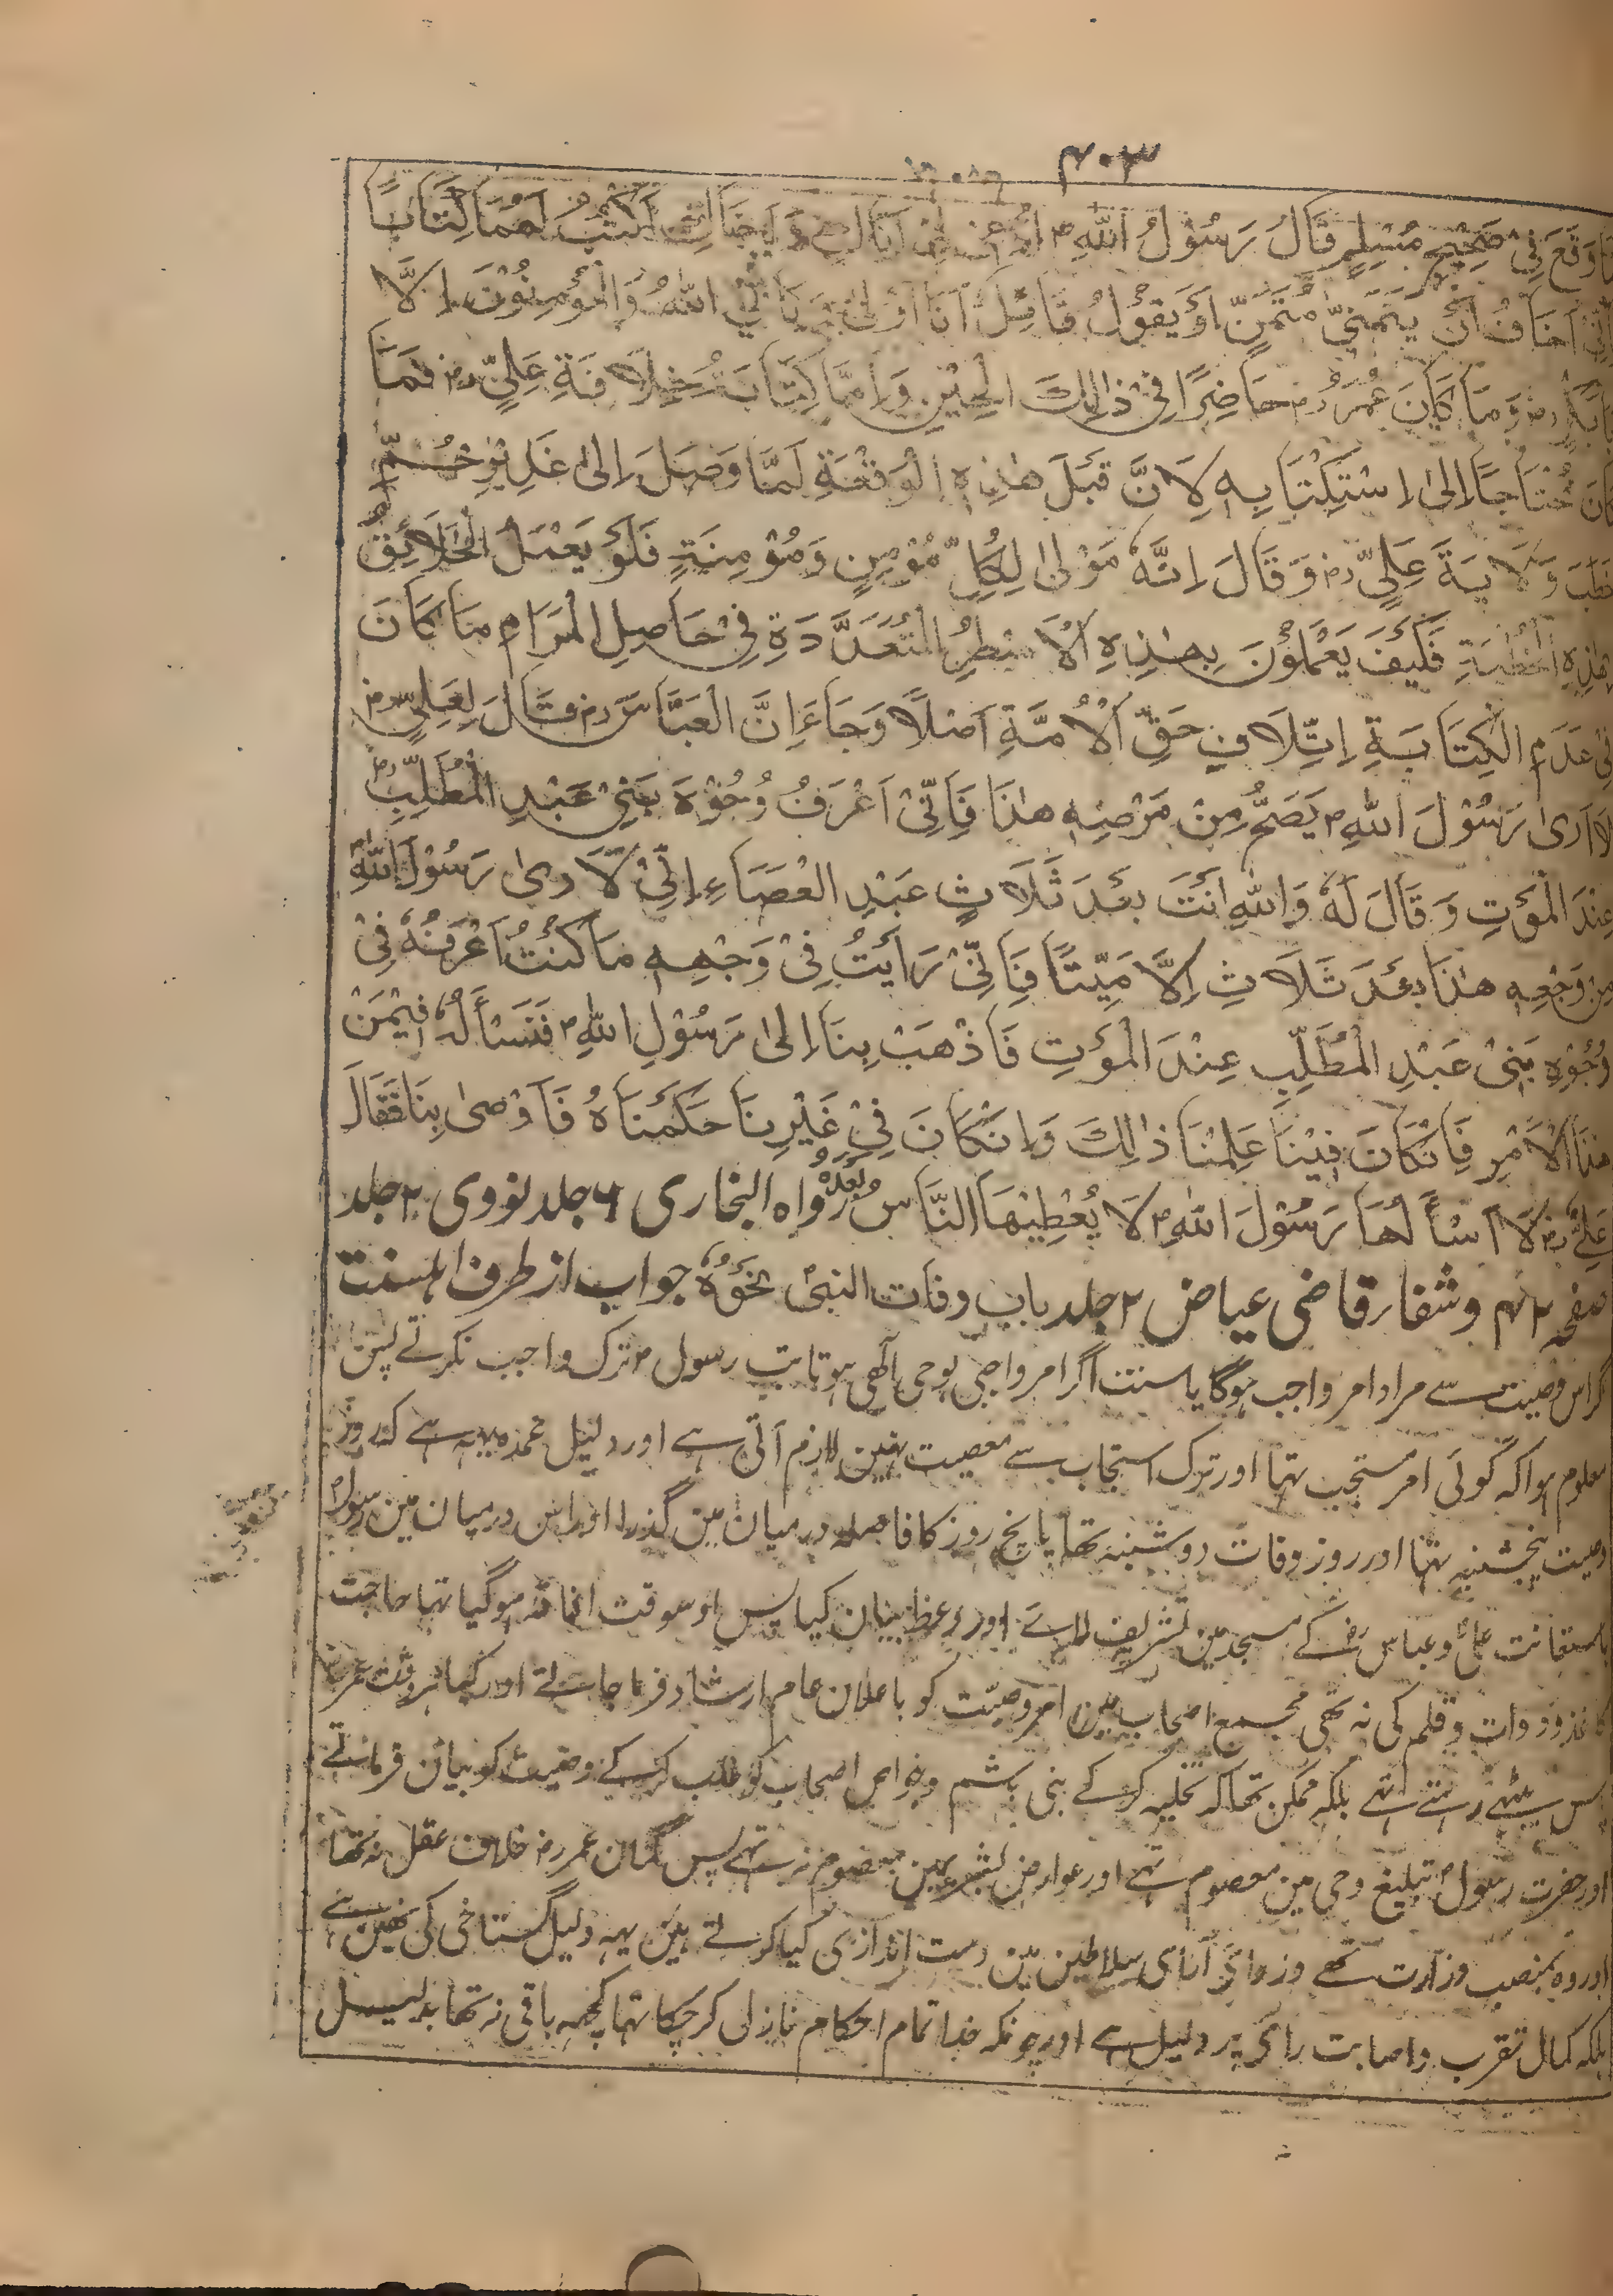 ۴۰۳
مَا وَقَعَ فِیْ صَحِیْحِ مُسْلِمٍ قَالَ رَسُوْلُ اللّٰهِ ؐ اَكْتُبُ لَهُمَا كِتَابًا
اِنِّیْ اَخَافُ اَنْ یَتَمَنّٰی مُتَمَنٍّ اَوْ یَقُوْلُ قَائِلٌ اَنَا اَوْلٰی وَ یَاْبَی اللّٰهُ وَالْمُؤْمِنُوْنَ اِلَّا
اَبَابَكْرٍ رض وَمَا كَانَ عُمَرُ رض حَاضِرًا فِیْ ذٰلِكَ الْحِیْنِ وَاَمَّا كِتَابَةُ خِلَافَةِ عَلِیٍّ رض فَمَا
كَانَ مُحْتَاجًا اِلٰی اِسْتِكْتَابِهٖ لِاَنَّ قَبْلَ هٰذِهِ الْوَقْعَةِ لَمَّا وَصَلَ اِلٰی غَدِیْرِ خُمٍّ
خَطَبَ وَلَایَةَ عَلِیٍّ رض وَقَالَ اِنَّهٗ مَوْلٰی لِكُلِّ مُؤْمِنٍ وَمُؤْمِنَةٍ فَلَوْ یَعْمَلُ الْخَلَائِقُ
بِهٰذِهِ الْخُطْبَةِ فَكَیْفَ یَعْمَلُوْنَ بِهٰذِهِ الْاَسْطُرِ الْمُتَعَدَّدَةِ فِیْ حَاصِلِ الْمَرَامِ مَا كَانَ
فِیْ عَدَمِ الْكِتَابَةِ اِتِّلَافِ حَقِّ الْاُمَّةِ اَصْلًا وَجَاءَ اِنَّ الْعَبَّاسَ رض قَالَ لِعَلِیٍّ رض
لَا اَرٰی رَسُوْلَ اللّٰهِ ؐ یَصَحُّ مِنْ مَرْضِهٖ هٰذَا فَاِنِّیْ اَعْرَفُ وُجُوْهَ بَنِیْ عَبْدِ الْمُطَّلِبِ
عِنْدَ الْمَوْتِ وَقَالَ لَهٗ وَاللّٰهِ اَنْتَ بَعْدَ ثَلَاثٍ عَبْدِ الْعَصَاءِ اِنِّیْ لَا رٰی رَسُوْلَ اللّٰهِ
مِنْ وَجْعِهٖ هٰذَا بَعْدَ ثَلَاثِ اِلَّا مَیِّتًا فَاِنِّیْ رَاَیْتُ فِیْ وَجْهِهٖ مَا كُنْتُ اَعْرَفُهٗ فِیْ
وُجُوْهِ بَنِیْ عَبْدِ الْمُطَّلِبِ عِنْدَ الْمَوْتِ فَاذْهَبْ بِنَا اِلٰی رَسُوْلِ اللّٰهِ ؐ فَنَسْاَلُهٗ فِیْمَنْ
هٰذَا الْاَمْرِ فَاِنْكَانَ فِیْنَا عَلِمْنَا ذٰلِكَ وَاِنْكَانَ فِیْ غَیْرِنَا حَكَمْنَاهُ فَاَوْصٰی بِنَا فَقَالَ
عَلِیٌّ رض لَا اَسْاَلُهَا رَسُوْلَ اللّٰهِ ؐ لَا یُعْطِیْهَا النَّاسُ بَعْدَهٗ رواہ البخاری ۶ جلد نووی ۲ جلد
صفحہ ۴۲ وشفار قاضی عیاض ۲ جلد باب وفات النبیؐ نَحْوُهٗ جواب از طرف اہلسنت
گر اس وصیت سے مراد امر واجب ہوگا یا سنت اگر امر واجبی بوحی آلہی ہوتا تب رسولؐ ترک واجب نکرتے پس
معلوم ہوا کہ کوئی امر مستحب تہا اور ترک استحباب سے معصیت نہین لازم آتی ہے اور دلیل عمدہ یہہ ہے کہ روز
وصیت پنجشنبہ تہا اور روز وفات دوشنبہ تھا پانچ روز کا فاصلہ درمیان مین گذرا اور اس درمیان مین رسولؐ
باستعانت علیؓ و عباس رض کے مسجد مین تشریف لائے اور وعظ بیان کیا پس اوسوقت افاقہ ہوگیا تہا حاجت
کاغذ و دوات و قلم کی نہ تہی مجمع اصحاب مین امر وصیت کو باعلان عام ارشاد فرما جاتے اور کیا ہروقت عمر رض
پس بیٹہے رہتے تہے بلکہ ممکن تھا کہ تخلیہ کرکے بنی ہاشم و خواص اصحاب کو طلب کرکے وصیت کو بیان فرماتے
اور حضرت رسولؐ تبلیغ وحی مین معصوم تہے اور عوارض بشریہ مین معصوم نہ تہے پس گمان عمر رض خلاف عقل نہ تھا
اور وہ بمنصب وزارت تھے وزرائی آرای سلاطین مین دست اندازی کیا کرتے ہین یہہ دلیل گستاخی کی نہین ہے
بلکہ کمال تقرب و اصابت رائ پر دلیل ہے اور چونکہ خدا تمام احکام نازل کر چکا تہا کچھہ باقی نہ تھا بدلیل